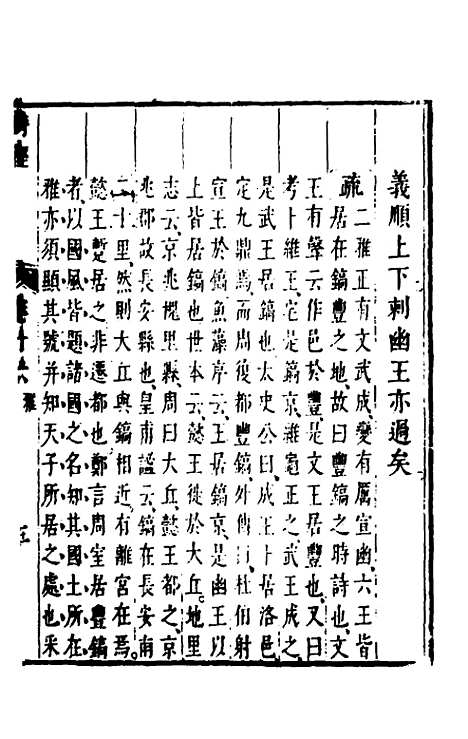 義順上下刺幽王亦過矣
疏二雅正有文武成變有厲宣幽六王皆
居在鎬豐之地故曰豐鎬之時詩也文
王有聲云作邑於豐是文王居豐也又曰
考卜維王宅是鎬京維龜正之武王成之
是武王居鎬也太史公曰成王卜居洛邑
定九鼎焉而周復都豐鎬外傳曰杜伯射
宣王於鎬魚藻序云王居鎬京是幽王以
上皆居鎬也世本云懿王徙於大丘地里
志云京兆槐里縣周曰大丘懿王都之京
兆都故長安縣也皇甫謐云鎬在長安南
二十里然則大丘與鎬相近有離宮在焉
懿王蹔居之非遷都也鄭言周室居豐鎬
者以國風皆題諸國之名知其國土所在
雅亦須顯其號并知天子所居之處也采
詩經
卷十六 雅
五